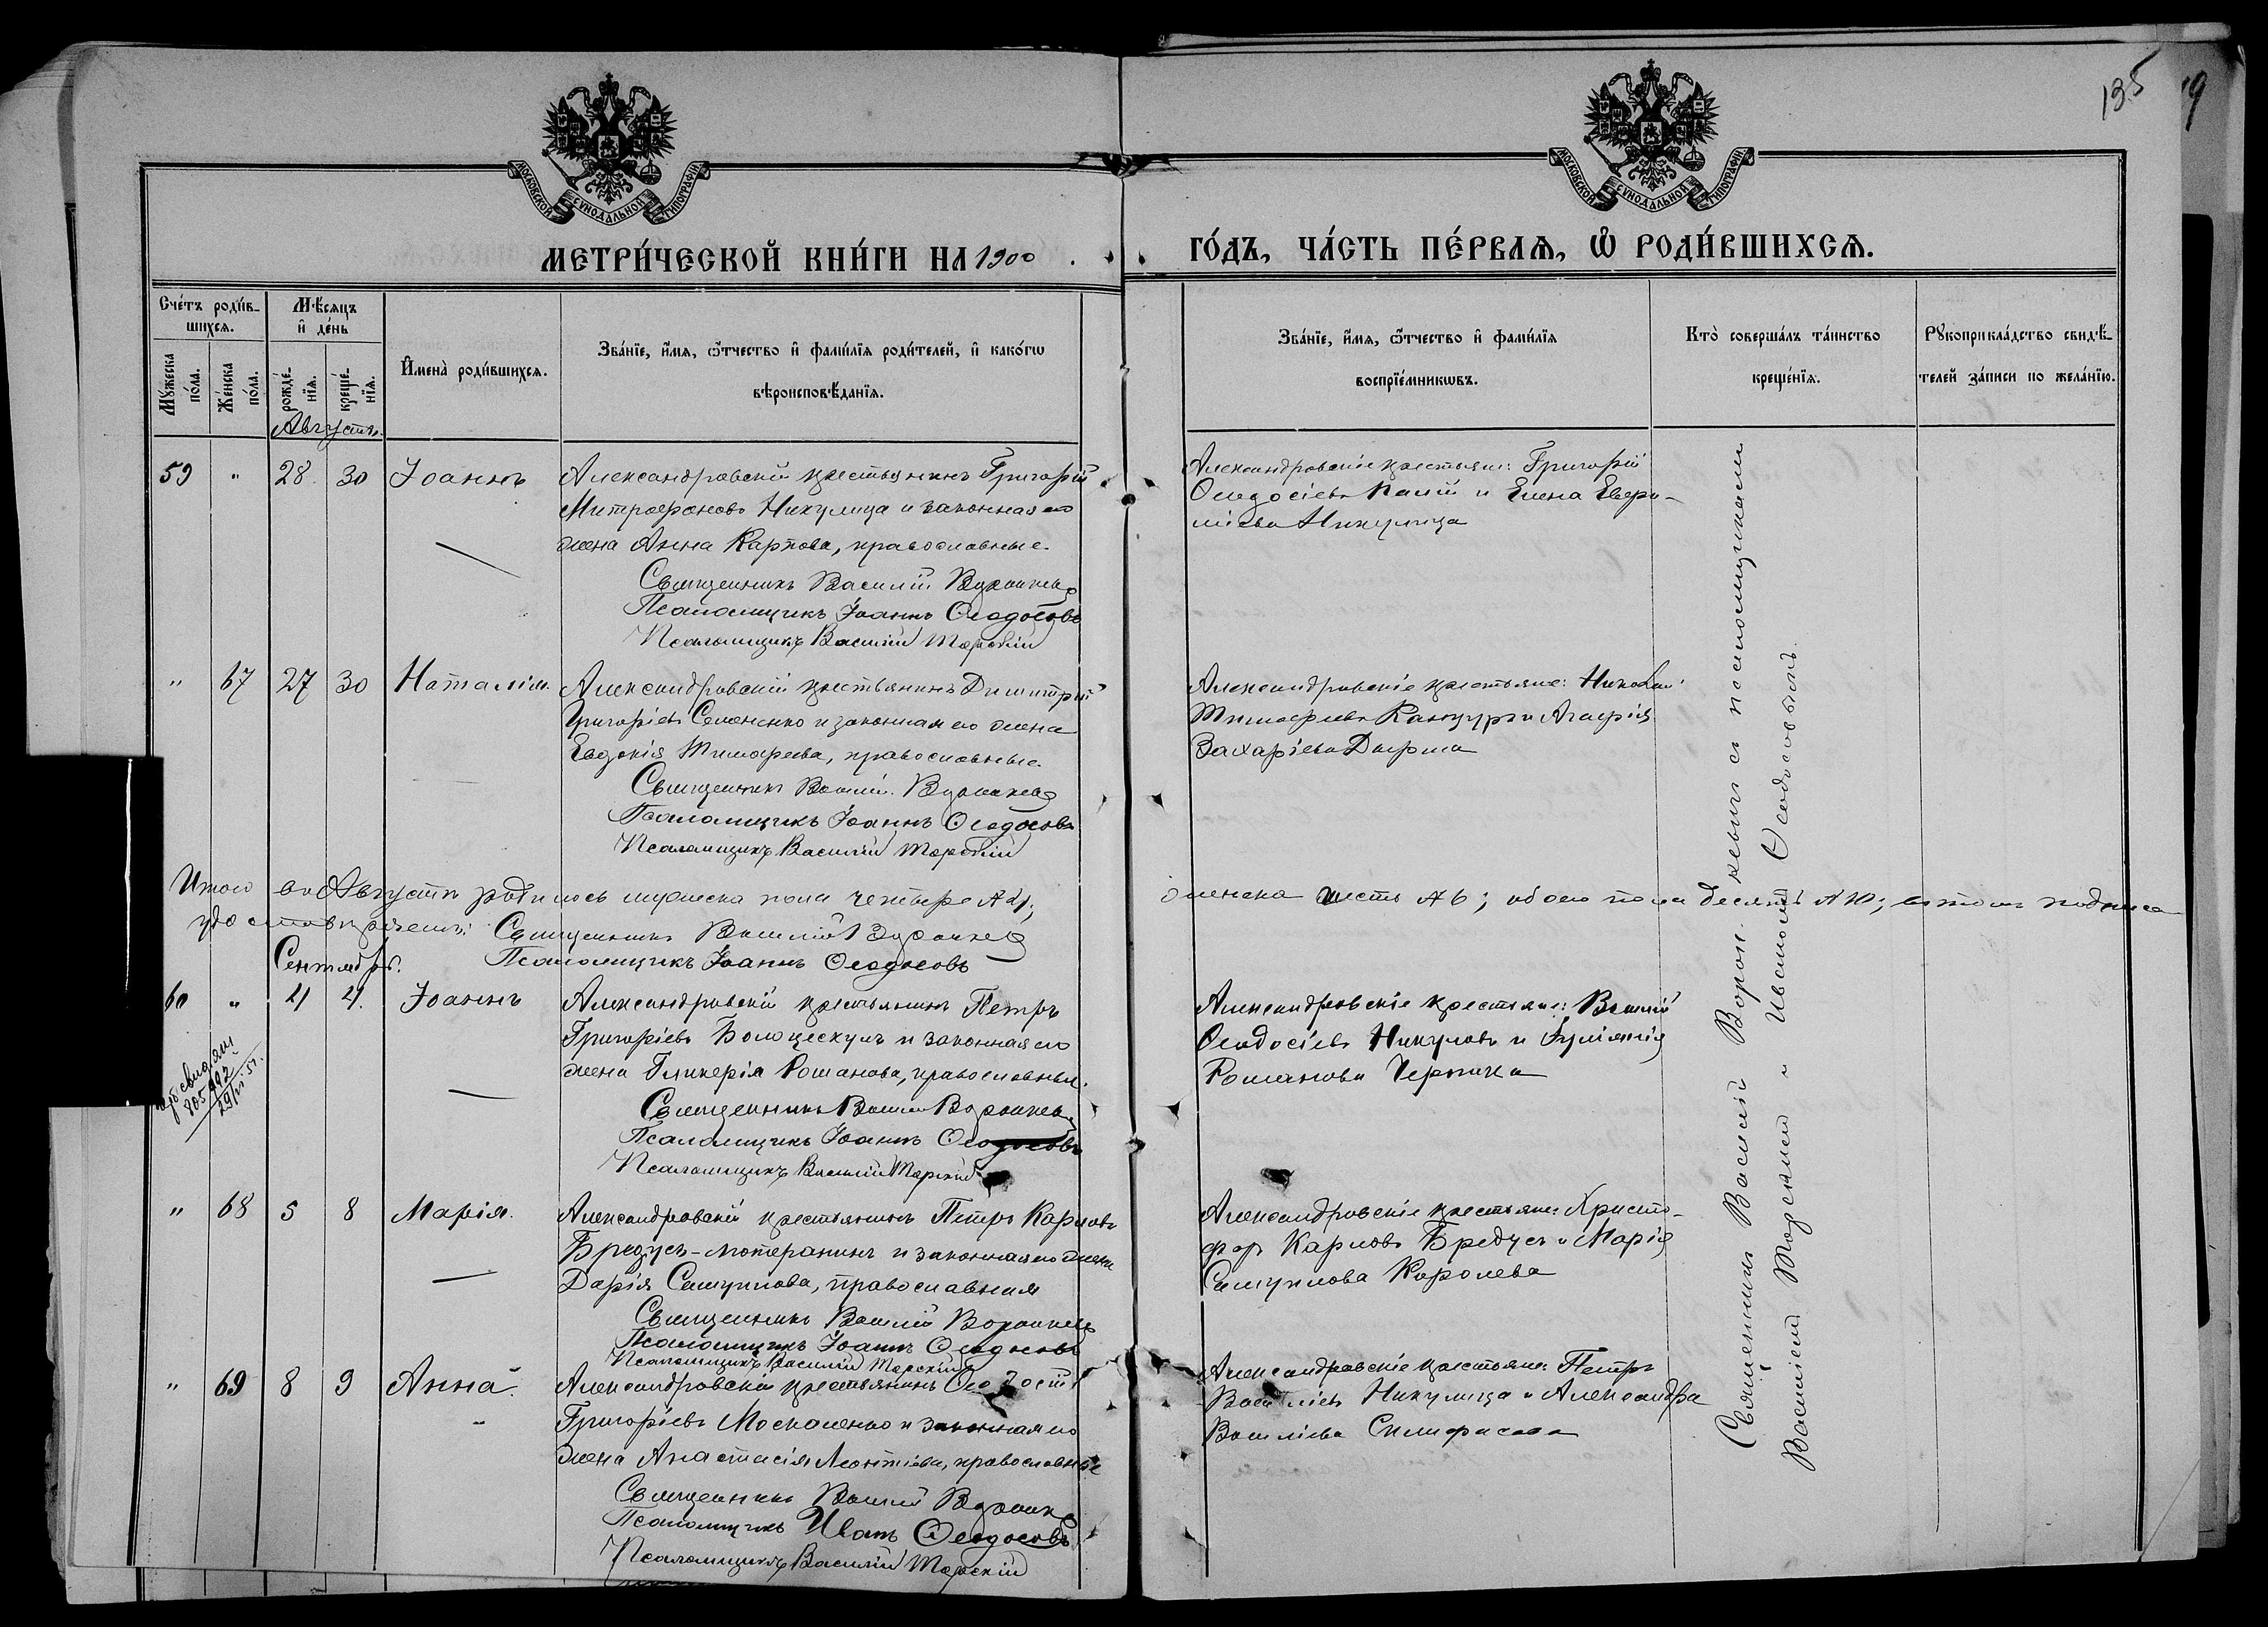 135
9
МОСКОВСКОЙ СѴНОДАЛЬНОЙ ТИПОГРАФІИ
МОСКОВСКОЙ СѴНОДАЛЬНОЙ ТИПОГРАФІИ
МЕТРИ́ЧЕСКОЙ КНИ́ГИ НА 1900
ГО́ДЪ, ЧА́СТЬ ПЕ́РВАѦ, Ѡ҆ РОДИ́ВШИХСѦ.
Сче́тъ роди́в-
шихсѧ.
Мꙋжеска по́ла.
Же́нска по́ла.
Мѣ́сѧцъ
и҆ де́нь
рожде́-
нїѧ.
креще́-
нїѧ.
И҆мена̀ роди́вшихсѧ.
Зва́нїе, и҆́мѧ, ѻ҆́тчество и҆ фамѵ́лїѧ роди́телей, и҆ како́гѡ
вѣроисповѣ́данїѧ.
Зва́нїе, и҆́мѧ, ѻ҆́тчество и҆ фамѵ́лїѧ
воспрїе́мникѡвъ.
Кто̀ соверша́лъ та́инство
креще́нїѧ.
Рꙋкоприкла́дство свидѣ́-
телей за́писи по жела́нїю.
Августъ.
59 " 28 30 Іоаннъ
Александровскій крестьянинъ Григорій
Митрофановъ Никулица и законная его
жена Анна Карпова, православные.
Священникъ Василій
Псаломщикъ Іоаннъ Ѳеодосовъ
Псаломщикъ Василій Торскій
Александровскіе крестьяне: Григорій
Ѳеодосіевъ Палій и Елена Евфи-
міева Никулица
" 67 27 30 Наталія.
Александровскій крестьянинъ Димитрій
Григоріевъ Семененко и законная его жена
Евдокія Тимофеева, православные.
Священникъ Василій
Псаломщикъ Іоаннъ Ѳеодосовъ
Псаломщикъ Василій Торскій
Александровскіе крестьяне: Николай
Тимофеевъ и Агафія
Захаріева
Итого въ Августѣ родилось мужеска пола четыре № 4; женска шесть № 6; обоего пола десять № 10; въ томъ подписа
удостовѣряемъ: Священникъ Василій
Псаломщикъ Іоаннъ Ѳеодосовъ
Сентябрь.
60 " 4 4. Іоаннъ
805492
Александровскій крестьянинъ Петръ
Григоріевъ и законная его
жена Гликерія Романова, православные.
Священникъ Василій
Псаломщикъ Іоаннъ Ѳеодосовъ
Псаломщикъ Василій Торскій
Александровскіе крестьяне: Василій
Ѳеодосіевъ Никуловъ и Іуліанія
Романова Черпика
" 68 5 8 Марія.
Александровскій крестьянинъ Петръ Карповъ
Бредусъ и законная его жена
Дарія Самуилова, православная
Священникъ Василій
Псаломщикъ Іоаннъ Ѳеодосовъ
Псаломщикъ Василій Торскій
Александровскіе крестьяне: Христо-
форъ Карповъ Бредусъ и Марія
Самуилова Королева
" 69 8 9 Анна.
Александровскій крестьянинъ Ѳеодосій
Григоріевъ Москаленко и законная его
жена Анастасія Леонтіева, православные
Священникъ Василій
Псаломщикъ Иванъ Ѳеодосовъ
Псаломщикъ Василій Торскій
Александровскіе крестьяне: Петръ
Василіевъ Никулица и Александра
Василіева
Священникъ Василій съ псаломщиками
Василіемъ Торскимъ и Иваномъ Ѳеодосовымъ.